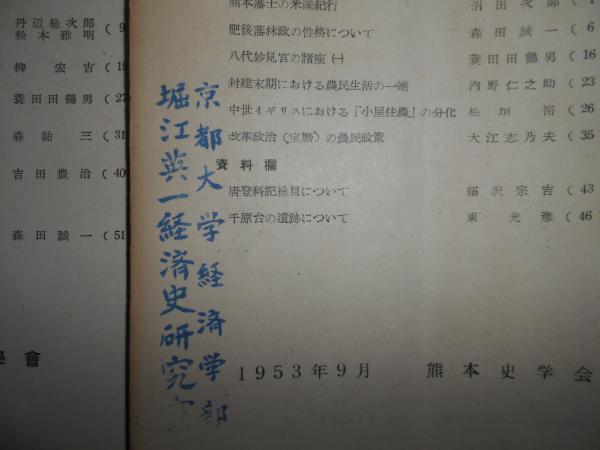 丹辺総次郎
松本雅明 (9
柳宏吉 (19
蓑田田鶴男 (27
森祐三 (31
吉田豊治 (40
森田誠一 (51
學會
熊本藩士の米国紀行 沼田次郎 (
肥後藩林政の性格について 森田誠一 (6
八代妙見宮の諸座㈠ 蓑田田鶴男 (16
封建末期における農民生活の一端 内野仁之助 (23
中世イギリスにおける「小屋住農」の分化 松垣裕 (26
改革政治(宝暦)の農民政策 大江志乃夫 (35
資料欄
唐登科記総目について 福沢宗吉 (43
千原台の遺跡について 東光彦 (46
京都大学経済学部
堀江英一経済史研究室
1953年9月 熊本史学会